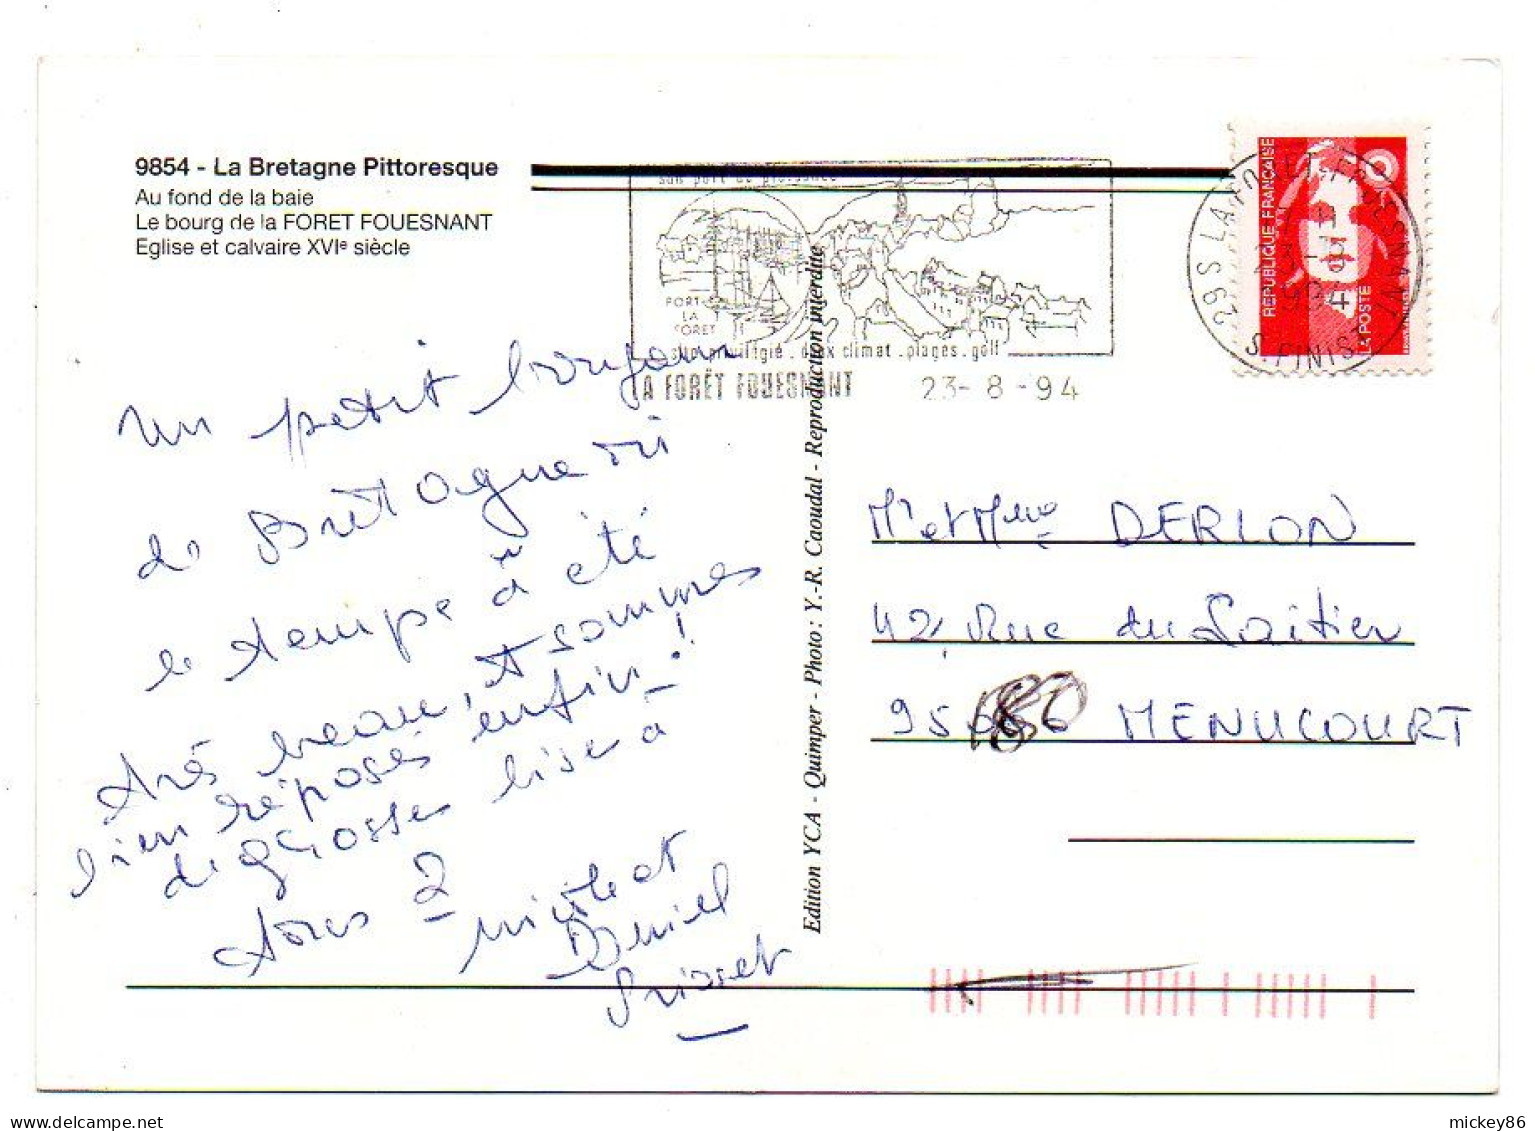 9854 - La Bretagne Pittoresque
Au fond de la baie
Le bourg de la FORET FOUESNANT
Eglise et calvaire XVIe siècle
son port de plaisance
PORT-
LA
FORET
site privilégié . doux climat . plages . golf
LA FORÊT FOUESNANT 23-8-94
29S LA FORET-FOUESNANT
23-8
1994
S. FINIST
REPUBLIQUE FRANÇAISE
LA POSTE
un petit bonjour
de Bretagne où
le temps à été
très beau, et sommes
bien réposés enfin !
de grosses bises à
tous 2
Nicole et
Daniel
Edition YCA - Quimper - Photo : Y.-R. Caoudal - Reproduction interdite
Mr et Mme DERLON
42, Rue du Laitier
95 MENUCOURT
mickey86